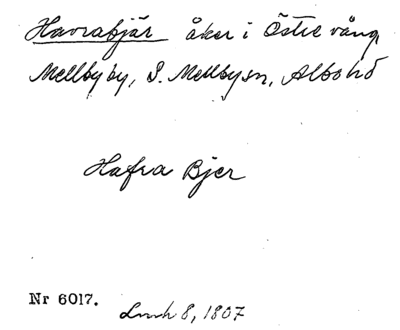 Havrabjär åker i Östre vång
Mellby by, S. Mellby sn, Albo hd
Hafra Bjer
Nr 6017.
Lmh 8, 1807